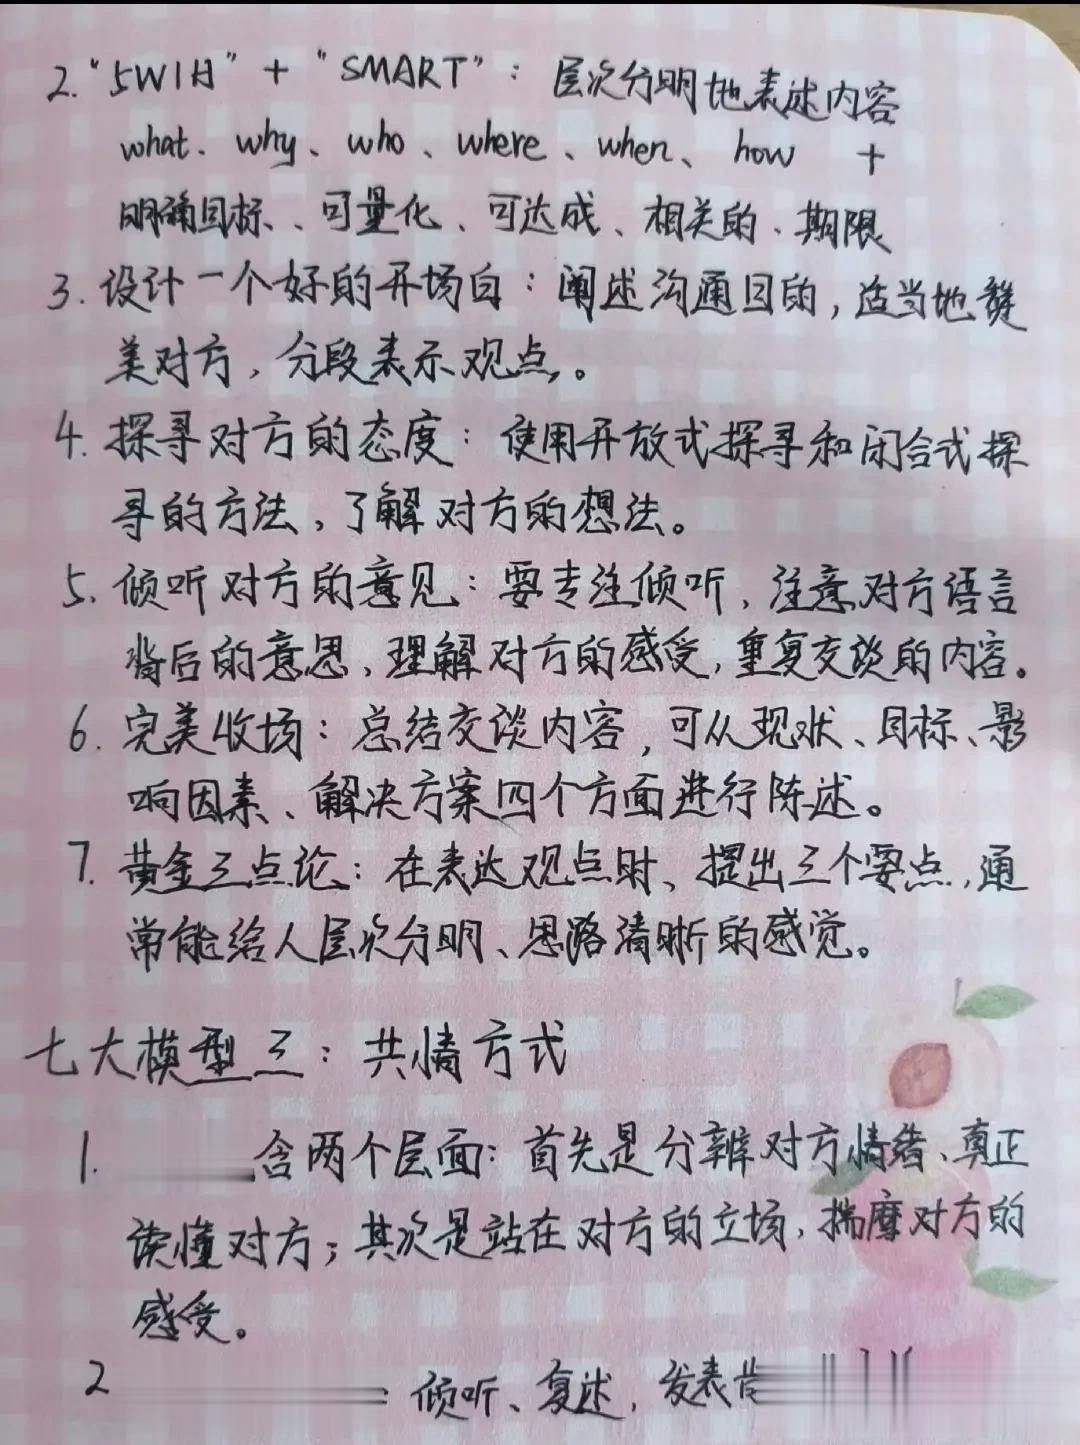 2. “5W1H” + “SMART”：层次分明地表述内容
what、why、who、where、when、how +
明确目标、可量化、可达成、相关的、期限
3. 设计一个好的开场白：阐述沟通目的，适当地赞
美对方，分段表示观点。
4. 探寻对方的态度：使用开放式探寻和闭合式探
寻的方法，了解对方的想法。
5. 倾听对方的意见：要专注倾听，注意对方语言
背后的意思，理解对方的感受，重复交谈的内容。
6. 完美收场：总结交谈内容，可从现状、目标、影
响因素、解决方案四个方面进行陈述。
7. 黄金三点论：在表达观点时、提出三个要点，通
常能给人层次分明、思路清晰的感觉。
七大模型三：共情方式
1. 含两个层面：首先是分辨对方情绪、真正
读懂对方；其次是站在对方的立场，揣摩对方的
感受。
2 ：倾听、复述，发表